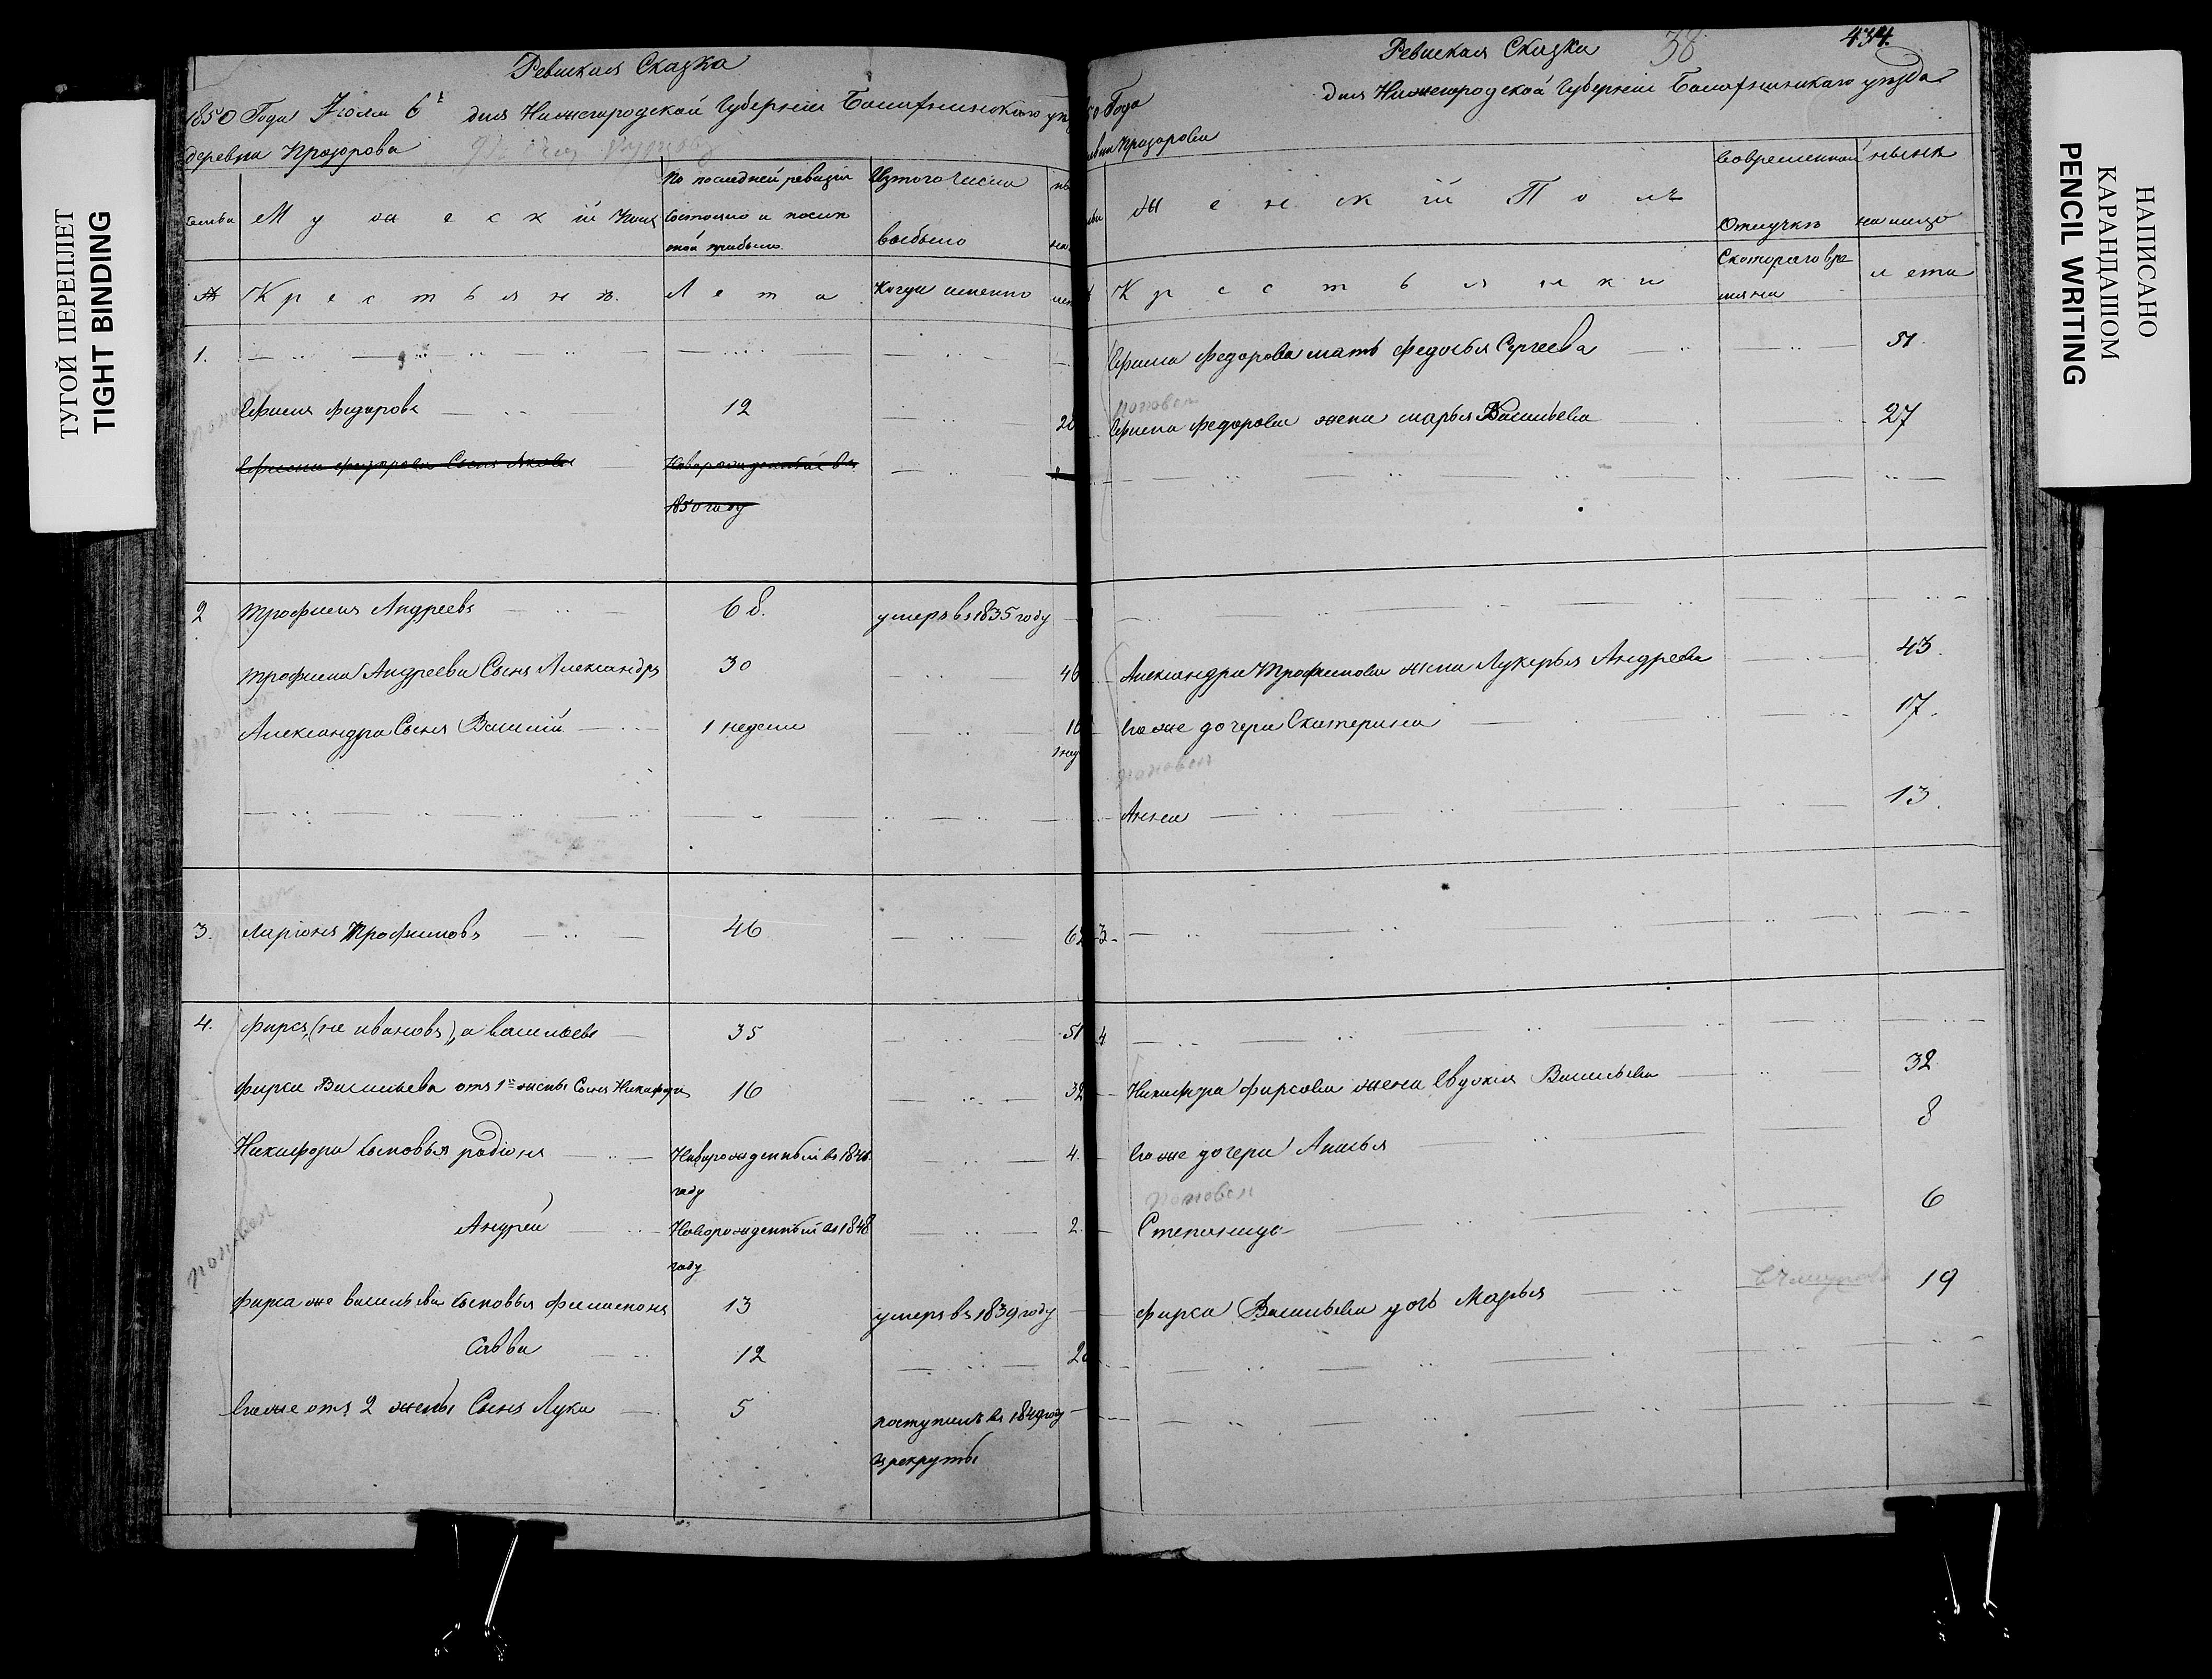 ТУГОЙ ПЕРЕПЛЕТ
TIGHT BINDING
Ревиская Сказка
1850 Года Июля 6го дня Нижегородской Губерніи Балахнинскаго уез
деревни Прозорова
семьи
Мужескій Полъ
По последней ревизіи
состояло и после
оной прибыло
Изтого числа
выбыло
№
Крестьянъ
Лета
Когда именно
1.
Ефимъ Федоровъ 12 28
Ефима Федорова Сынъ Яковъ Новорожденный въ
1850 году
2 Трофимъ Андреевъ 68. умеръ въ 1835 году
Трофима Андреева Сынъ Александръ 30 46
Александра Сынъ Василій 1 недели 16
1 нед
3. Ларіонъ Трофимовъ 46 62
4. Фирсъ (не ивановъ), а васильевъ 35 51
Фирса Васильева отъ 1й жены Сынъ Никифоръ 16 32
Никифора сыновья радіонъ Новорожденный въ 1846 4.
году
Андрей Новорожденный въ 1848 2.
году
поповъ
Фирса же васильева сыновья Филимонъ 13 умеръ въ 1839 году
Савва 12 28
Егоже отъ 2 жены Сынъ Лука 5 поступилъ въ 1849 году
врекруты
Ревиская Сказка 38 434.
50 Года дня Нижегородской Губерніи Балахнинскаго уезда
Прозорова
Женскій Полъ
вовременной
Отлучке
ныне
на лицо
Крестьянки
Скотораго вре
мяни
лета
Ефима Федорова мать Федосья Сергеева 51.
Ефима Федорова жена марья Васильева 27
Александра Трофимова жена Лукерья Андреева 43.
Егоже дочери Екатерина 17.
Анна 13.
3
4
Никифора Фирсова жена Евдокия Васильева 32
Егоже дочери Анисья 8
Степанида 6
Фирса Васильева дочь Марья 19
НАПИСАНО
КАРАНДАШОМ
PENCIL WRITING